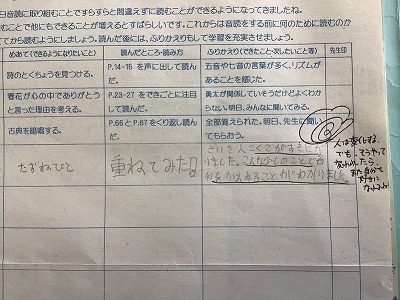 日音読に取り組むことですらすらと間違えずに読むことができるようになってきましたね。
むことで他にもできることが増えるとすばらしいです。これからは音読をする前に何のために読むのか
てから読むようにしましょう。読んだ後には、ふりかえりもして学習を充実させましょう。
めあて（できるようになりたいこと）
読んだところ・読み方
ふりかえり（できたこと・次したいこと等）
先生印
詩のとくちょうを見つける。
P.14-15 を声に出して読んだ。
五音や七音の言葉が多く、リズムがあることを感じた。
春花が心の中でありがとうと言った理由を考える。
P.23-27 をできごとに注目して読んだ。
勇太が関係していそうだけどよくわからない。明日、みんなに聞いてみる。
古典を暗唱する。
P.66 と P.67 をくり返し読んだ。
全部覚えられた。明日、先生に聞いてもらおう。
たずねびと
重ねてみた!!
さいきんこくごがすきになりました。こんな少しのことで自分をかえれることがわかりました
人は変化する。
でも
変われたら、
また自分で
好きに